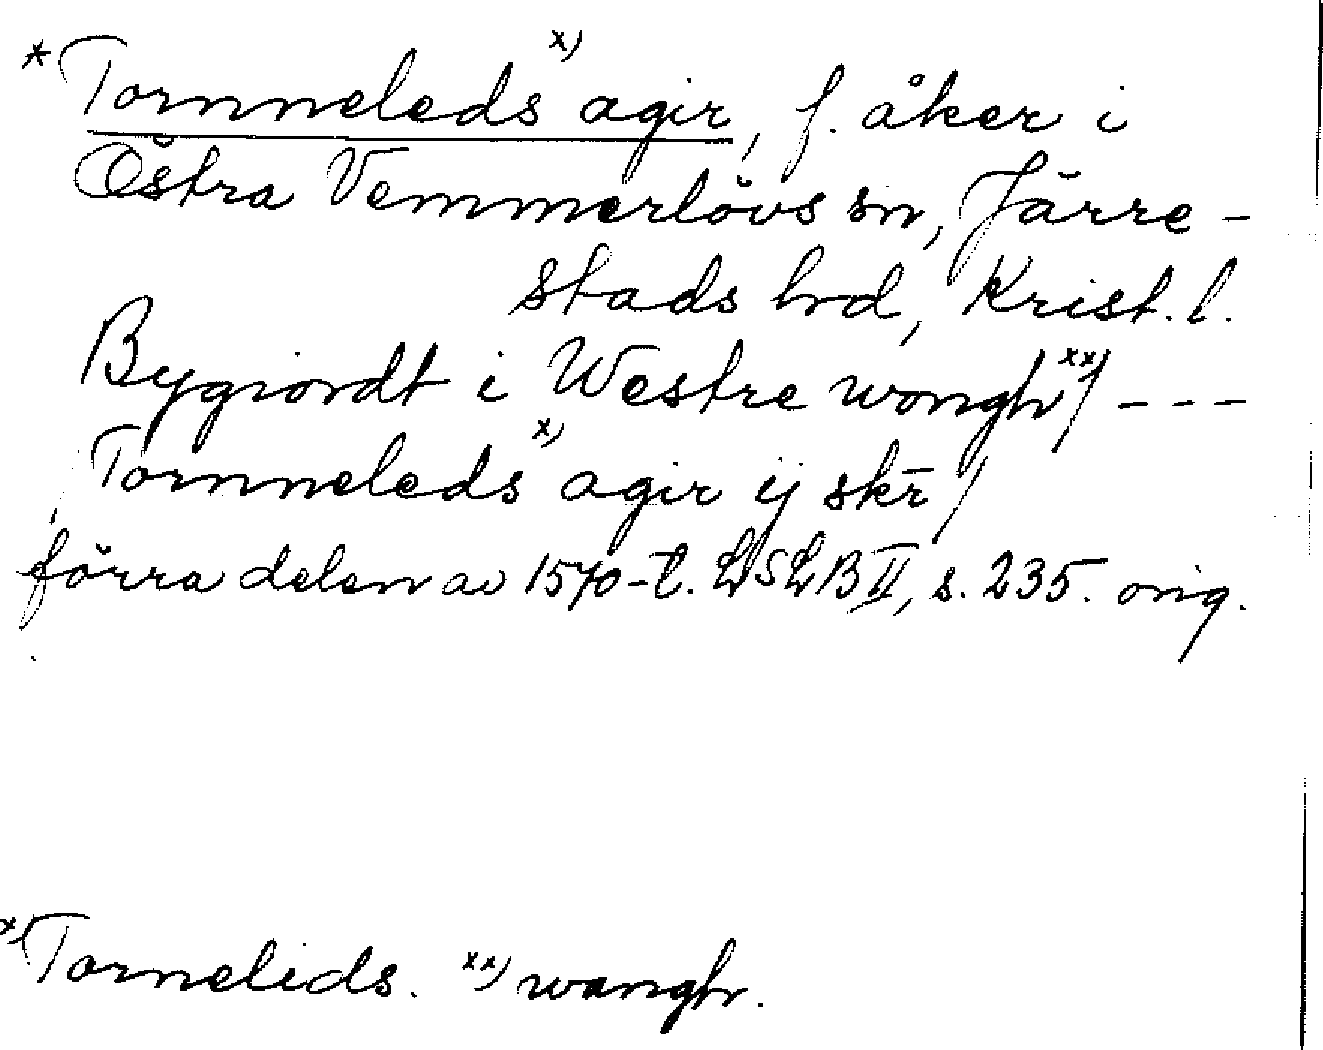 *Tornneleds x) agir, f. åker i
Östra Vemmerlövs sn, Järre-
stads hrd, Krist. l.
Bygiordt i Westre wongh xx) / - - -
Tornneleds x) agir ij skr̄ /
förra delen av 1570-t. LSLB II, s. 235. orig.
x) Tornelids. xx) wangh.